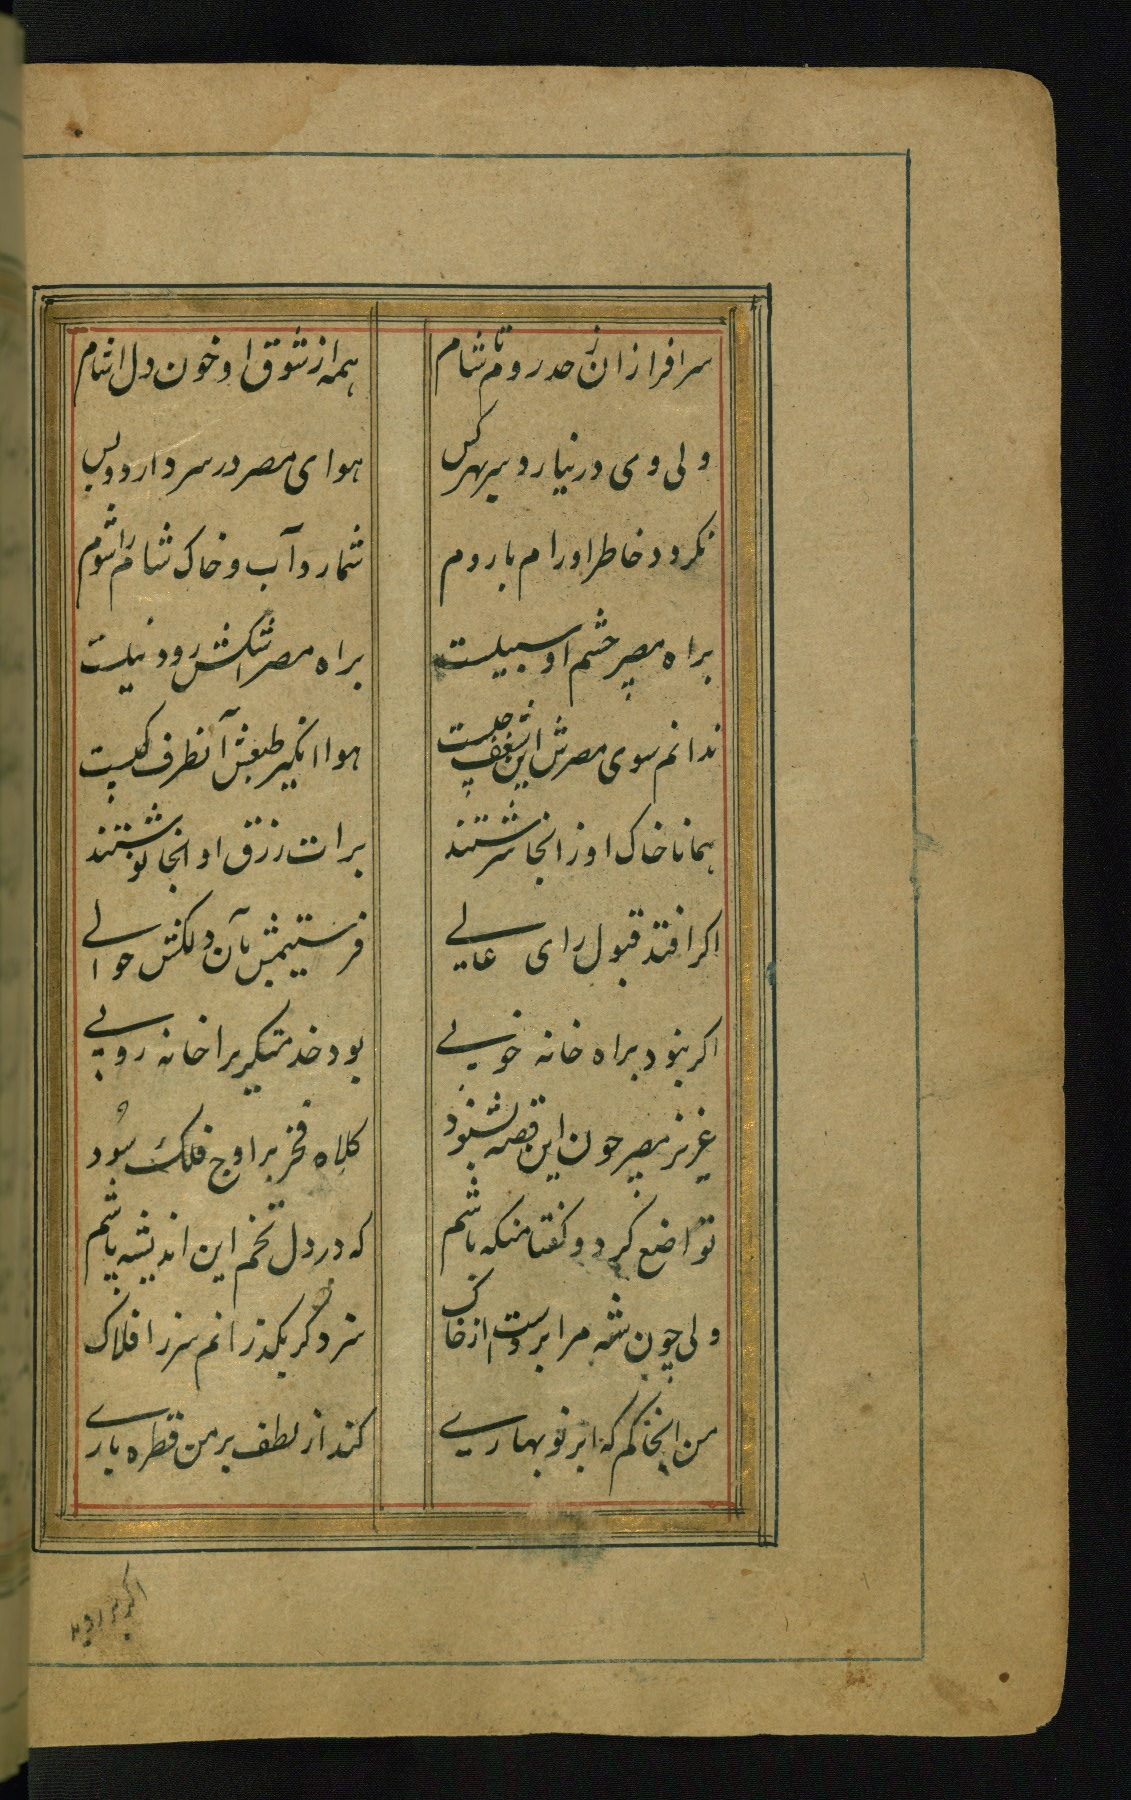 سرافرازان ز حد روم تا شام همه از شوق او خون دل آشام
ولی وی در نیارد سر بهر کس هوای مصر در سر دارد و بس
نکردد خاطر او رام با روم شمارد آب و خاک شام را شوم
براه مصر چشم او سبیلست براه مصر اشکش رود نیلست
ندانم سوی مصرش این شغف چیست هوا انکیز طبعش آنطرف کیست
همانا خاک او زانجا سرشتند برات رزق او انجا نوشتند
اکر افتد قبول رای عالی فرستیمش بآن دلکش حوالی
اکر نبود براه خانه خوبی بود خدمتکری را خانه روبی
عزیز مصر چون این قصه بشنود کلاه فخر بر اوج فلک سود
تواضع کرد و کفتا منکه باشم که در دل تخم این اندیشه پاشم
ولی چون شه مرا برداشت از خاک سزد کر بکذرانم سر ز افلاک
من آنخاکم که ابر نوبهاری کند از لطف بر من قطره باری
اکر بر روید